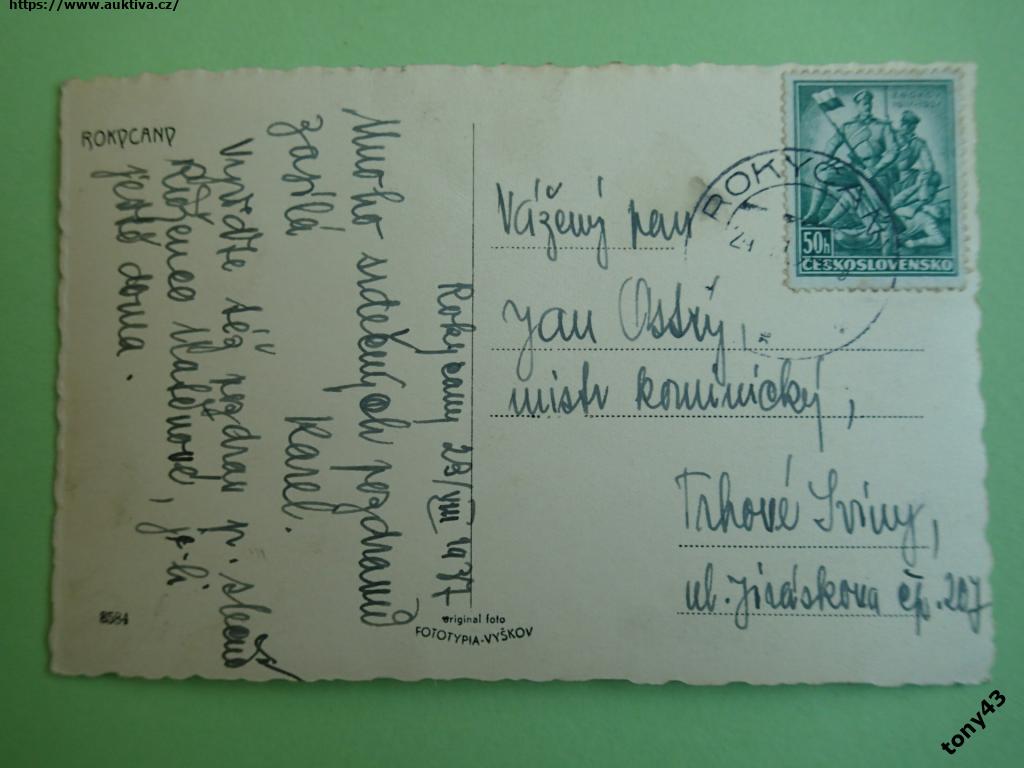 https://www.auktiva.cz/
ROKYCANY
Rokycany 23/VIII 1937
Mnoho srdečných pozdravů
zasílá
Karel.
Vyřiďte též pozdrav p. slečně
Růžence, je-li
ještě doma.
8584
original foto
FOTOTYPIA-VYŠKOV
ZBOROV
1917-1937
50h
ČESKOSLOVENSKO
ROKYCAN
Vážený pan
Jan Ostrý,
mistr kominický,
Trhové Sviny,
ul. Jiráskova čp. 207
tony43